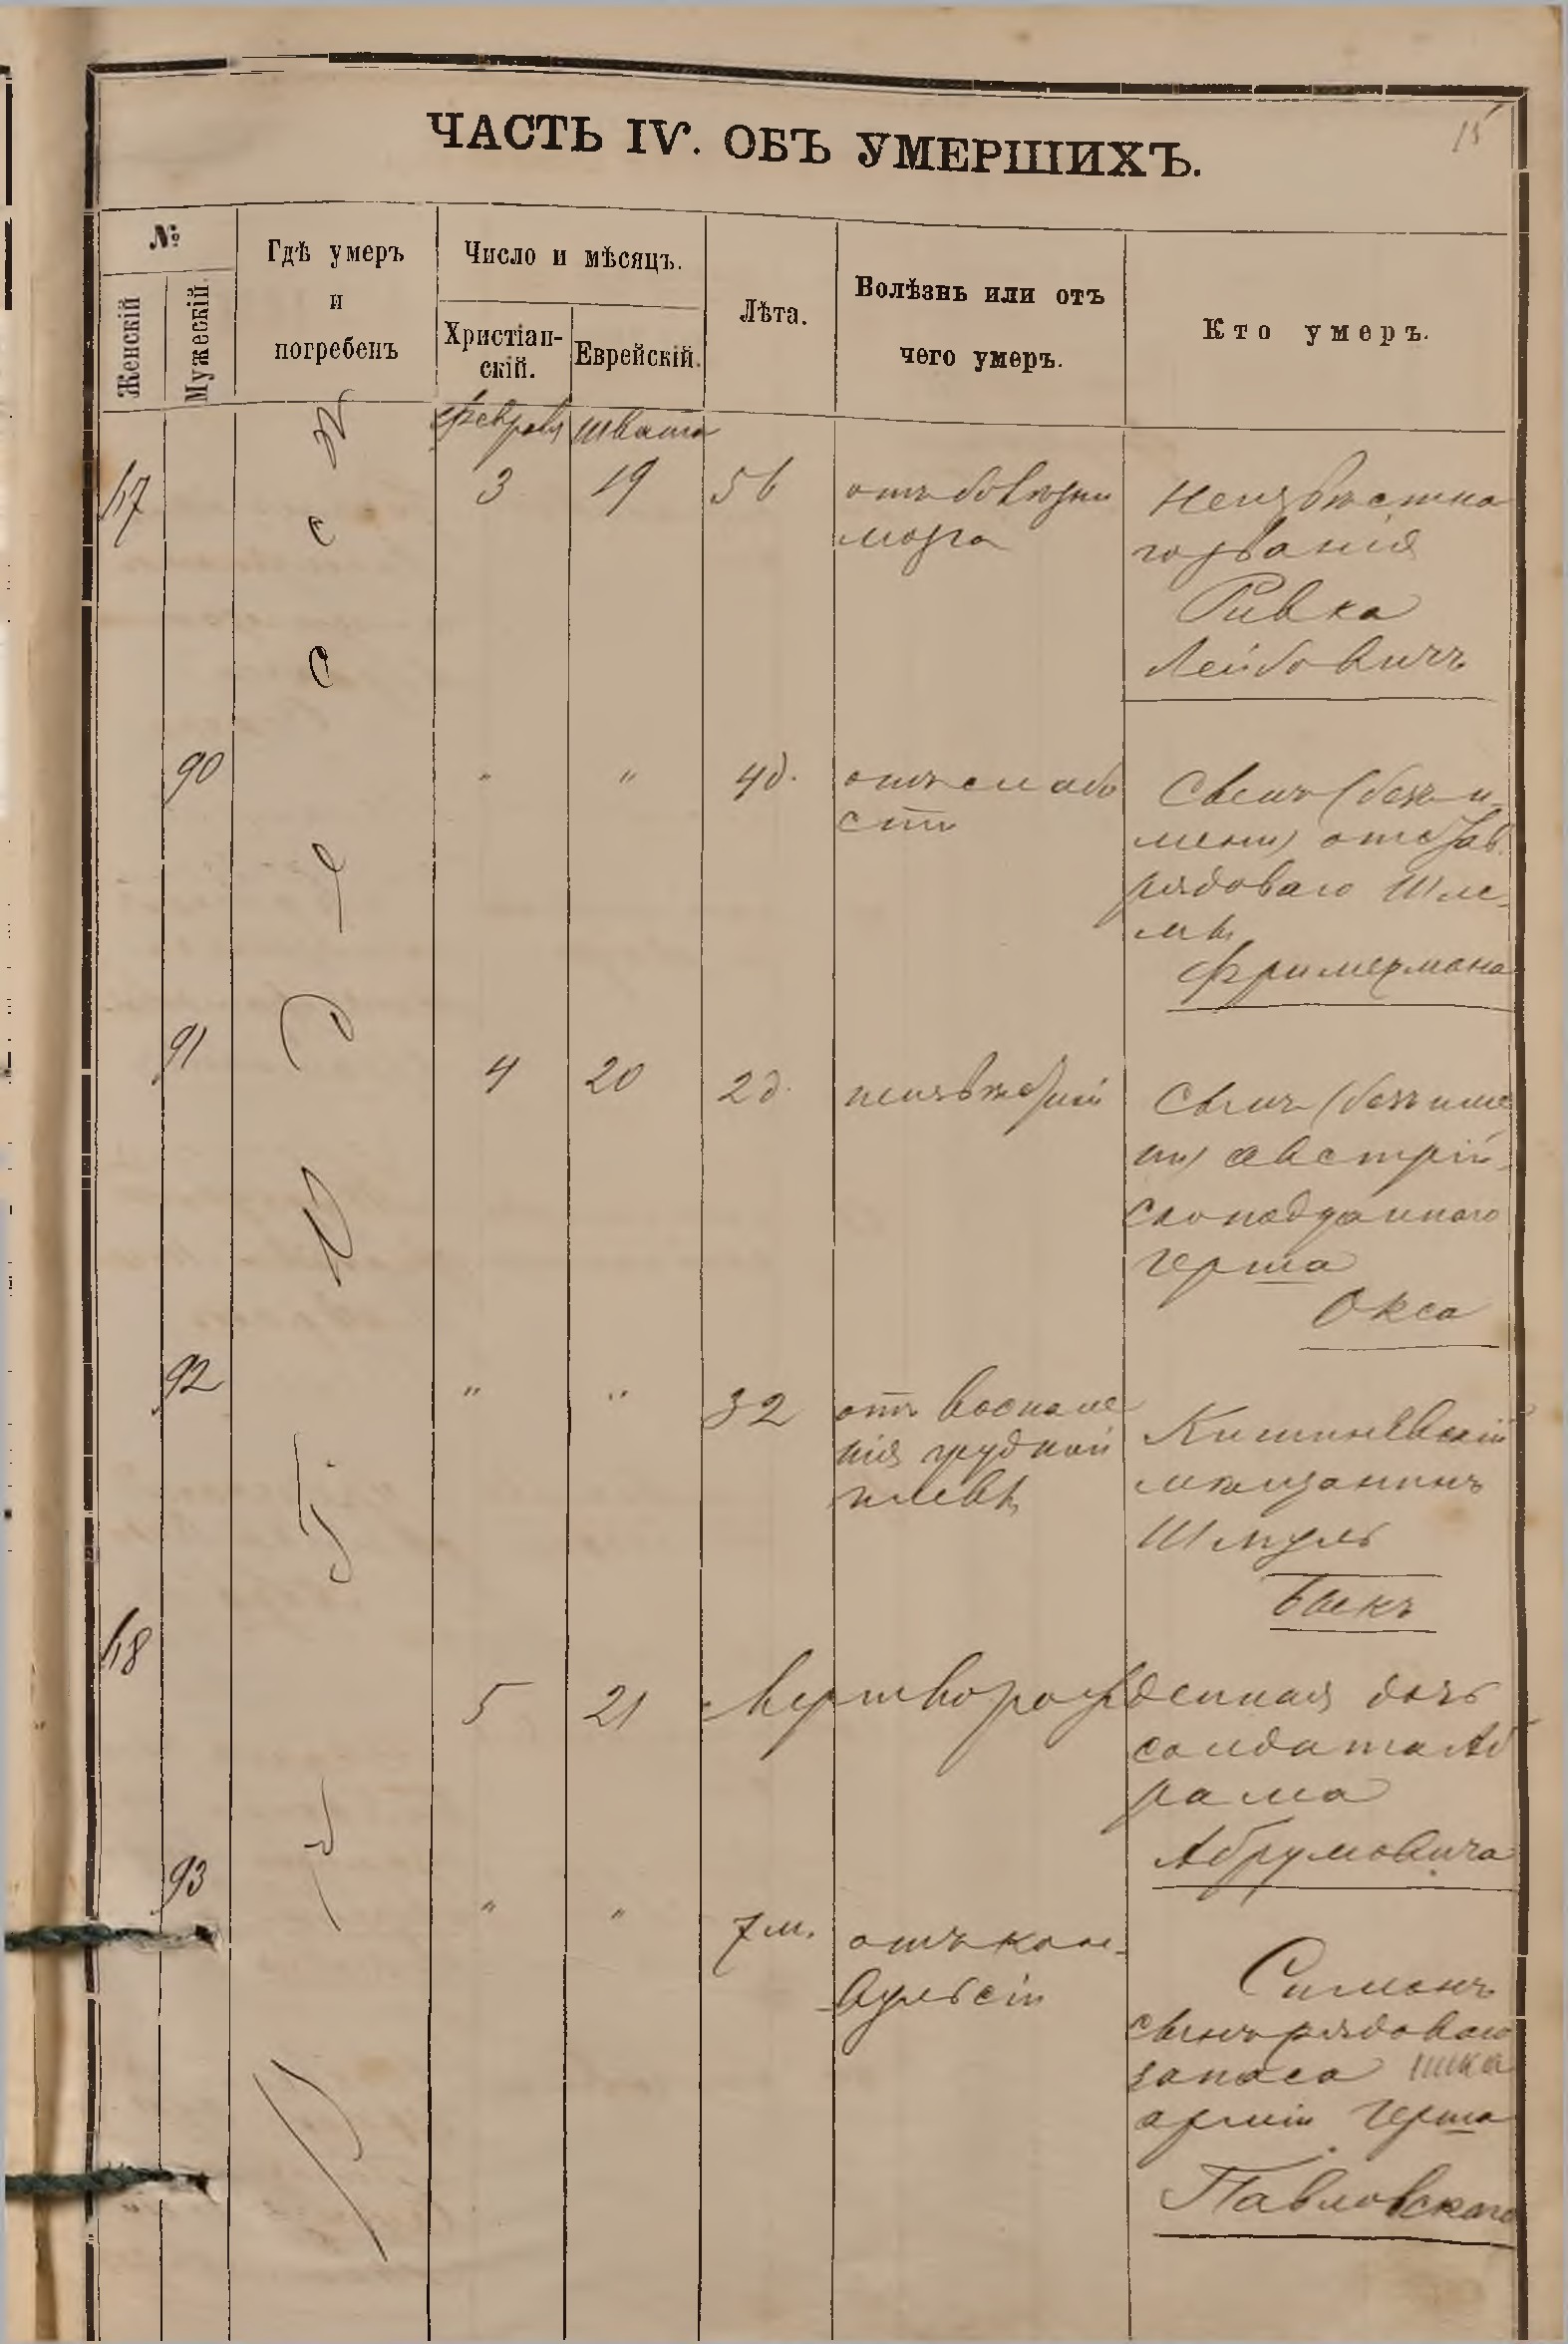 15
ЧАСТЬ IV. ОБЪ УМЕРШИХЪ.
№
Женскій
Мужескій.
Гдѣ умеръ
и
погребенъ
Число и мѣсяцъ.
Христіан-
скій.
Еврейскій.
Лѣта.
Болѣзнь или отъ
чего умеръ.
Кто умеръ.
февраля швата
Г. Одесса
47
3
19
56
отъ болѣзни
мозга
Неизвѣстна
го званія
Ривка
Лейбовичъ
90
"
"
4 д.
отъ слабо
сти
Сынъ (безъ и-
мени)
рядоваго Шле-
мы
Фримермана
91
4
20
2 д.
Сынъ (безъ име
ни) австрій-
скоподданнаго
Герша
Окса
92
"
"
32
отъ воспале
нія грудной
плевы
Кишиневскій
мѣщанинъ
Шмуль
Бакъ
48
5
21
Мертворожденная дочь
солдата Аб
рама
Абрумовича
93
"
"
7 м.
отъ кон-
вульсіи
Симонъ
сынъ рядоваго
запаса
арміи Герша
Павловскаго